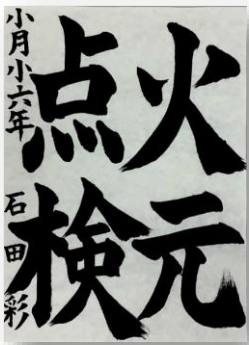 火元
点検
小月小六年
石田彩